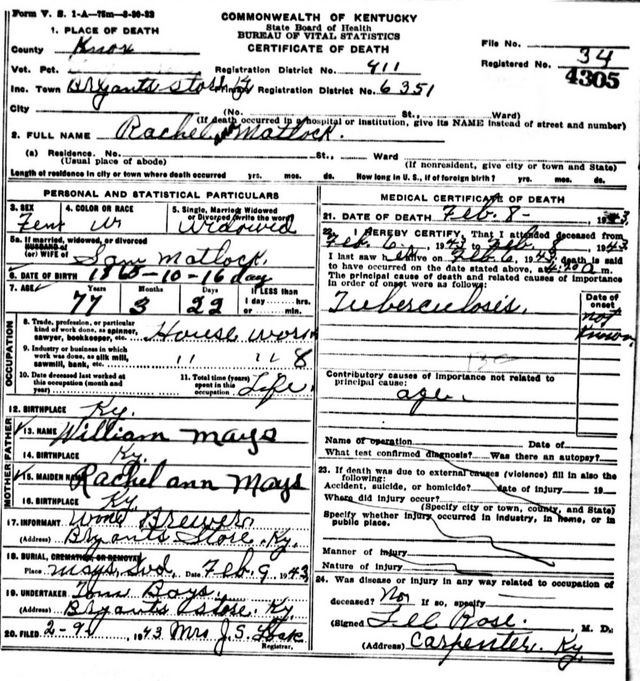 Form V. S. 1-A—75m—8-30-32
COMMONWEALTH OF KENTUCKY
State Board of Health
BUREAU OF VITAL STATISTICS
CERTIFICATE OF DEATH
1. PLACE OF DEATH
County Knox
File No. 34
Registered No. 4305
Vot. Pct. Registration District No. 911
Inc. Town Bryants Store Ky Registration District No. 6351
City (No. St., Ward)
(If death occurred in a hospital or institution, give its NAME instead of street and number)
2. FULL NAME Rachel Matlock.
(a) Residence. No. St., Ward
(Usual place of abode) (If nonresident, give city or town and State)
Length of residence in city or town where death occurred yrs. mos. ds. How long in U. S., if of foreign birth? yrs. mos. ds.
PERSONAL AND STATISTICAL PARTICULARS
3. SEX 4. COLOR OR RACE 5. Single, Married, Widowed
or Divorced (write the word)
Fem W Widowed
5a. If married, widowed, or divorced
HUSBAND of
(or) WIFE of Sam Matlock.
6. DATE OF BIRTH 1865-10-16 day
7. AGE Years Months Days If LESS than
1 day hrs.
or min.
77 3 22
OCCUPATION
8. Trade, profession, or particular
kind of work done, as spinner,
sawyer, bookkeeper, etc. House work
9. Industry or business in which
work was done, as silk mill,
sawmill, bank, etc. " " 8
10. Date deceased last worked at
this occupation (month and
year)
11. Total time (years)
spent in this
occupation Life.
12. BIRTHPLACE Ky.
FATHER
13. NAME William Mays
14. BIRTHPLACE Ky.
MOTHER
15. MAIDEN NAME Rachel ann Mays
16. BIRTHPLACE Ky
17. INFORMANT Brewer
(Address) Bryants Store. Ky.
18. BURIAL, CREMATION OR REMOVAL
Place Mays, Date Feb 9 1943
19. UNDERTAKER Tom Bays.
(Address) Bryants Store. Ky
20. FILED 2-9 1943 Mrs J. S.
Registrar.
MEDICAL CERTIFICATE OF DEATH
21. DATE OF DEATH Feb. 8-
22. I HEREBY CERTIFY, That I attended deceased from
Feb 6, 1943 to Feb 8, 1943
I last saw h er alive on Feb 6, 1943 death is said
to have occurred on the date stated above, at m.
The principal cause of death and related causes of importance
in order of onset were as follows:
Date of
onset
Tuberculosis. not
known
Contributory causes of importance not related to
principal cause:
age.
Name of operation Date of
What test confirmed diagnosis? Was there an autopsy?
23. If death was due to external causes (violence) fill in also the
following:
Accident, suicide, or homicide? date of injury 19
Where did injury occur?
(Specify city or town, county, and State)
Specify whether injury occurred in industry, in home, or in
public place.
Manner of injury
Nature of injury
24. Was disease or injury in any way related to occupation of
deceased? No If so, specify
(Signed) Rose. M. D.
(Address) Carpenter. Ky.